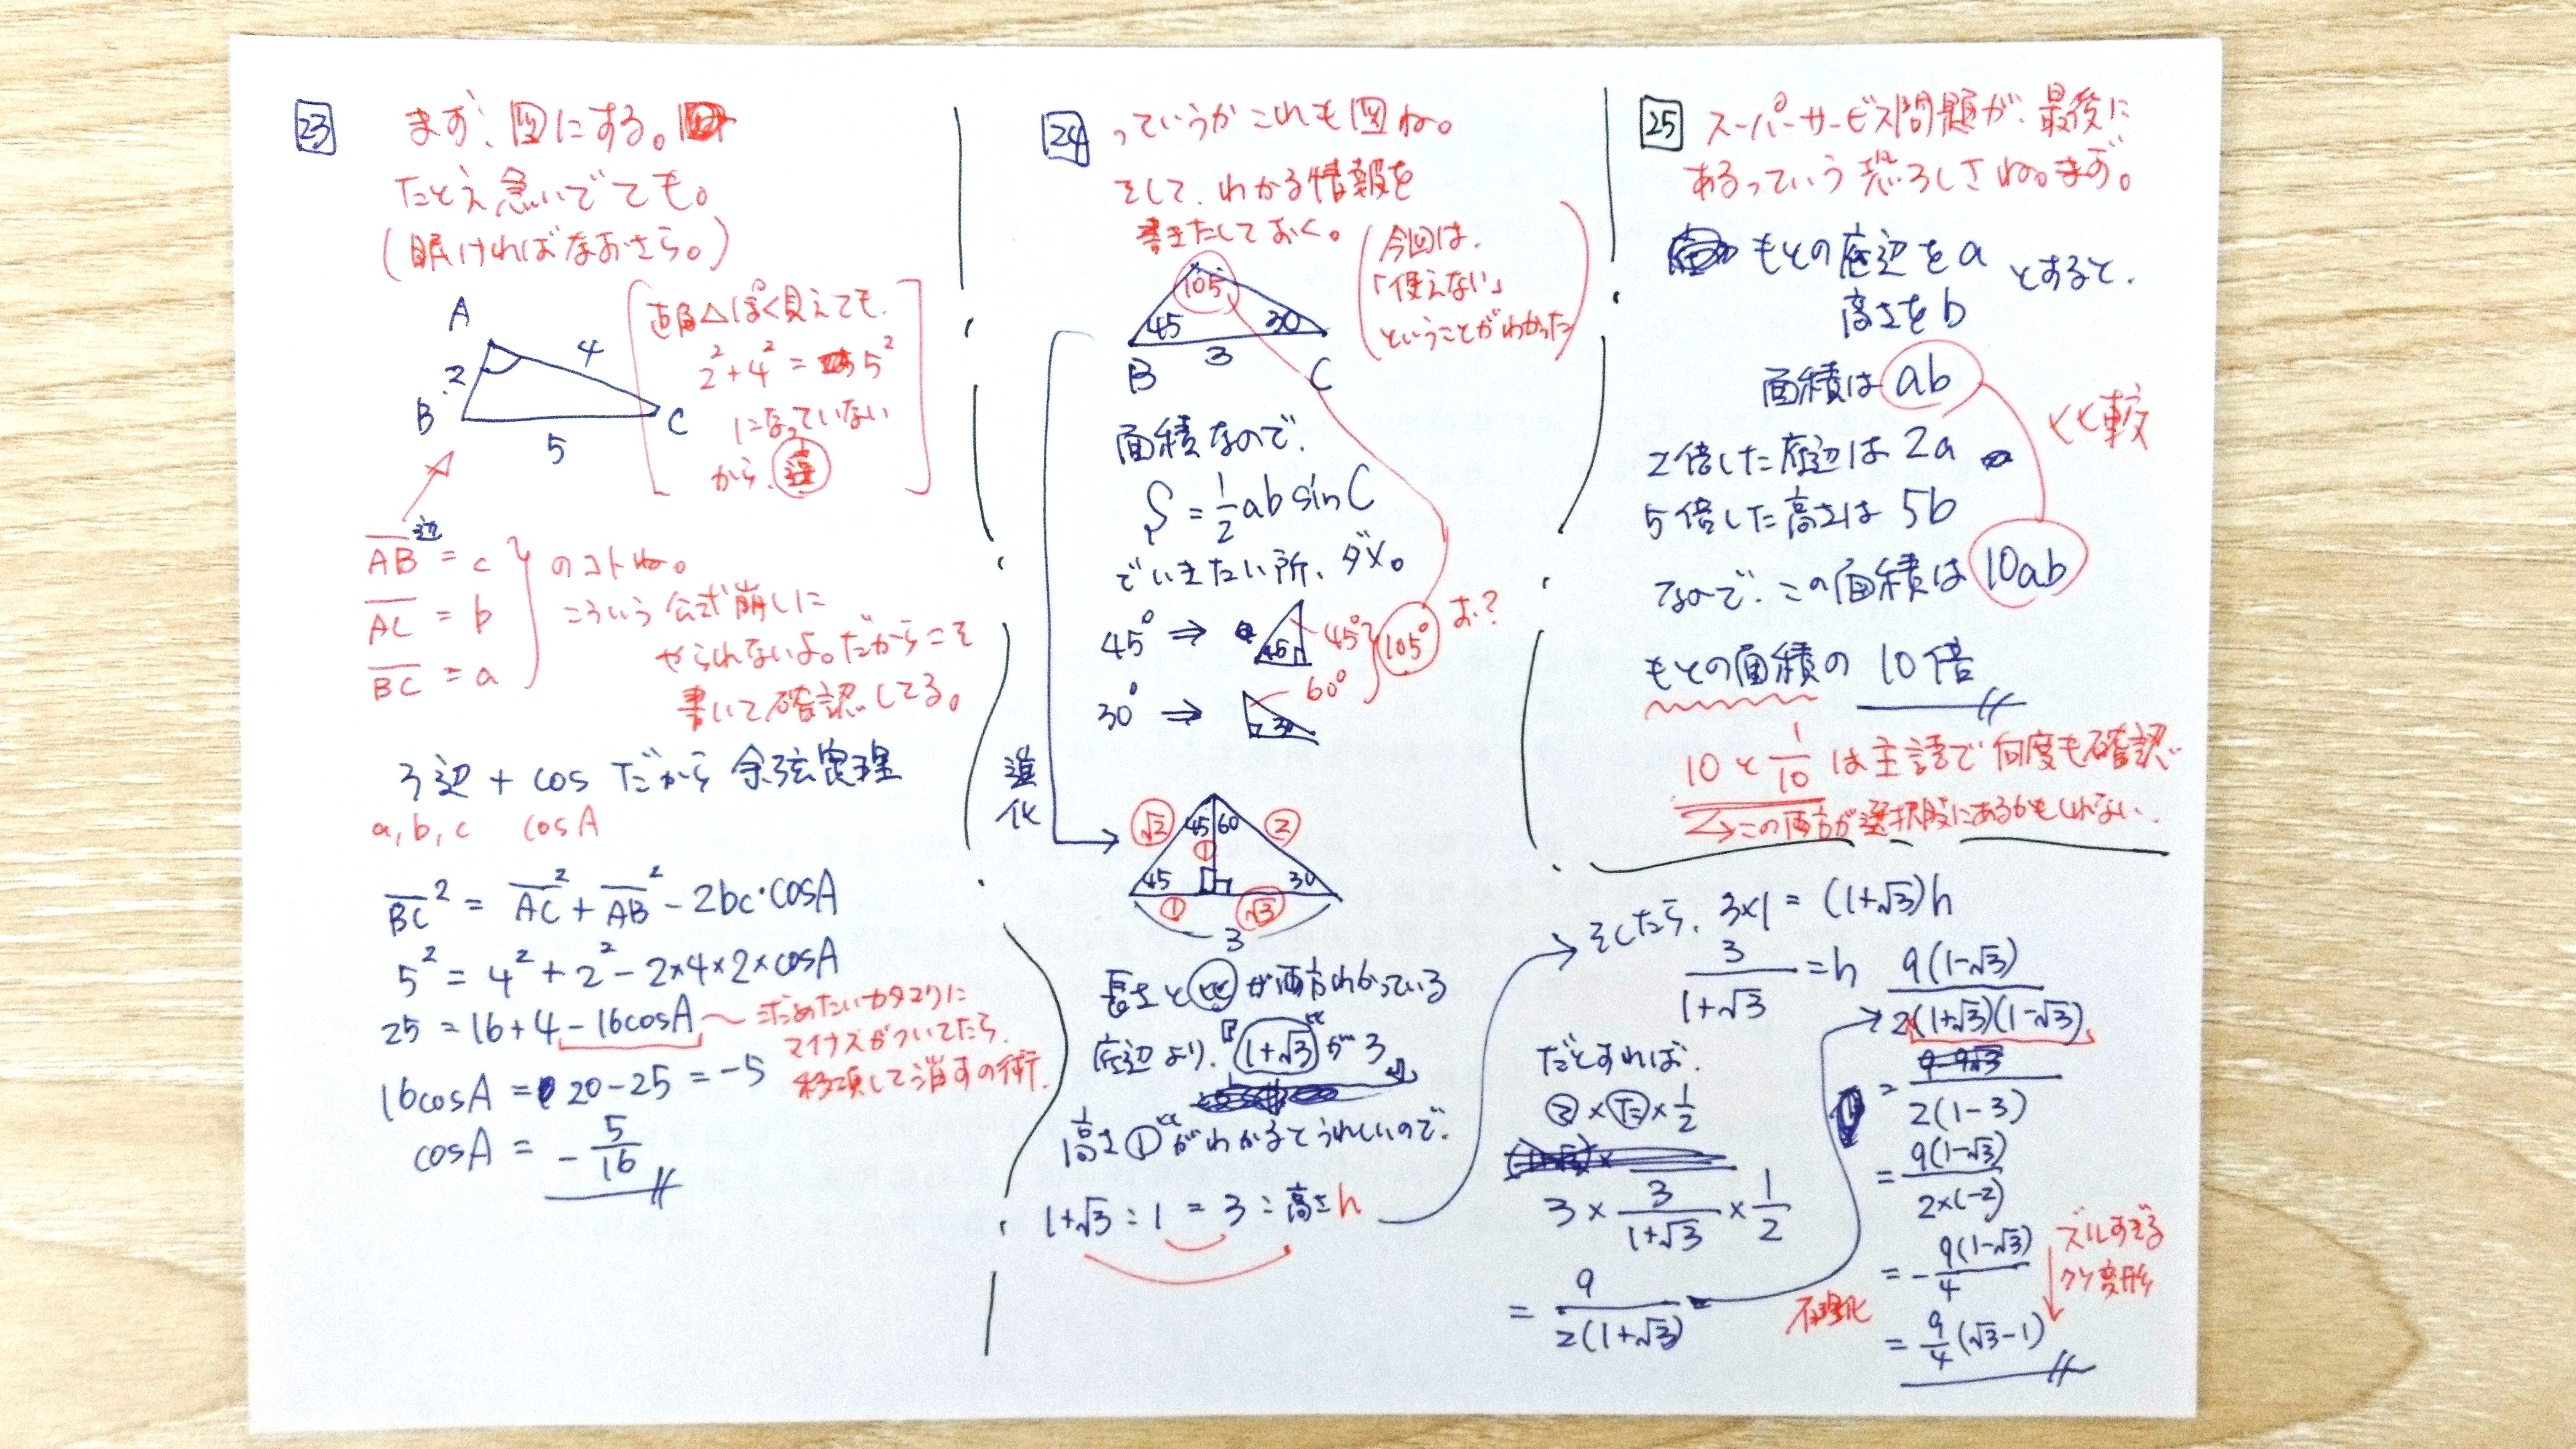 23
まず、図にする。
たとえ急いでても。
(眠ければなおさら。)
A
2
4
B
5
C
直角△ぽく見えても、
2²+4²=5²
になっていない
から、
辺
AB = c
AC = b
BC = a
のコトね。
こういう公式崩しに
やられないよ。だからこそ
書いて確認してる。
3辺 + cos だから 余弦定理
a, b, c cosA
BC² = AC² + AB² - 2bc・cosA
5² = 4² + 2² - 2×4×2×cosA
25 = 16+4-16cosA
求めたいカタマリに
マイナスがついてたら、
移項して消すの術。
16cosA = 20-25 = -5
cosA = -5/16
24
っていうかこれも図ね。
そして、わかる情報を
書きたしておく。
(今回は、
「使えない」
ということがわかった)
105
45
30
3
B
C
面積なので、
S = 1/2 ab sin C
でいきたい所、ダメ。
45° ⇒ 45 45°
30° ⇒ 30 60°
105° お?
進化
√2
45
60
2
1
45
30
1
√3
3
長さと比が両方わかっている
底辺より、『(1+√3)比が3』
高さ①比がわかるとうれしいので、
1+√3 : 1 = 3 : 高さh
そしたら、3×1 = (1+√3)h
3/(1+√3) = h
だとすれば、
× × 1/2
3 × 3/(1+√3) × 1/2
= 9/(2(1+√3))
有理化
9(1-√3)/(2(1+√3)(1-√3))
= 2(1-3)
= 9(1-√3)/(2×(-2))
= -9(1-√3)/4
ズルすぎる
クソ変形
= 9/4 (√3-1)
25
スーパーサービス問題が、最後に
あるっていう恐ろしさね。まず。
もとの底辺をa
高さをb
とすると、
面積は ab
2倍した底辺は 2a
5倍した高さは 5b
なので、この面積は 10ab
比較
もとの面積の 10倍
10と1/10は主語で何度も確認
この両方が選択肢にあるかもしれない。